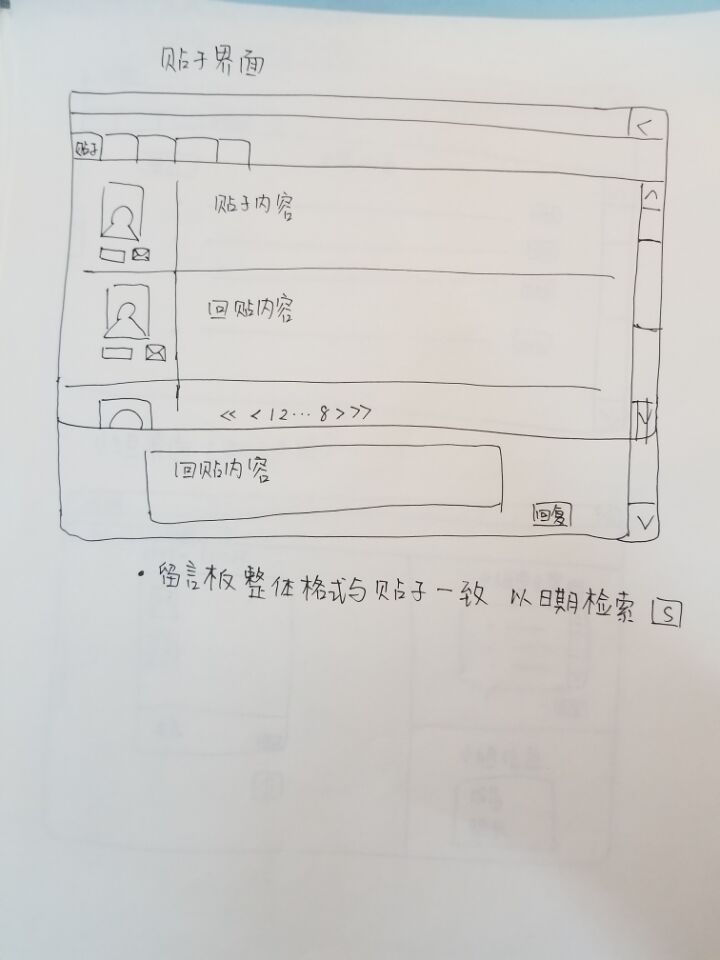 贴子界面
<
贴子
贴子内容
回贴内容
<< < 1 2 … 8 > >>
回贴内容
回复
• 留言板整体格式与贴子一致 以日期检索 S